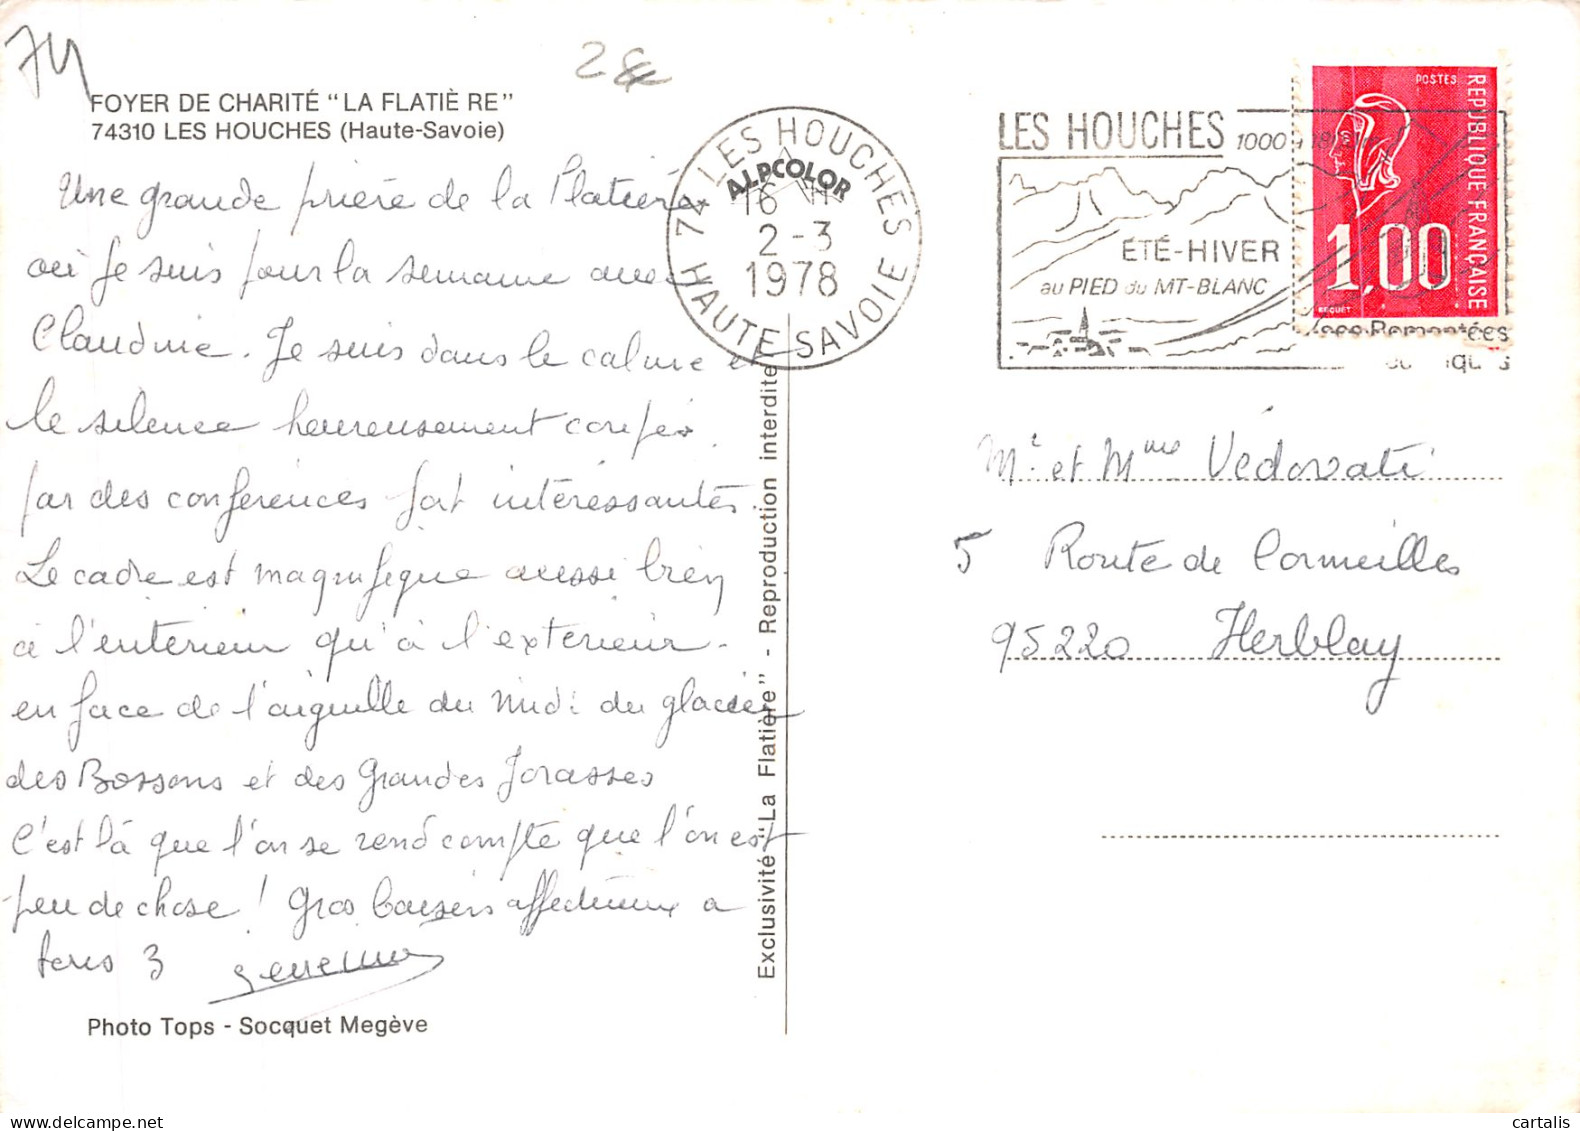 74
28
FOYER DE CHARITÉ "LA FLATIÈ RE"
74310 LES HOUCHES (Haute-Savoie)
Une grande prière de la Flatière
où je suis pour la semaine avec
Claudine. Je suis dans le calme et
le silence heureusement coupés
par des conférences fort intéressantes.
Le cadre est magnifique aussi bien
à l'intérieur qu'à l'extérieur -
en face de l'aiguille du midi du glacier
des Bossons et des Grandes Jorasses
C'est là que l'on se rend compte que l'on est
peu de chose ! Gros baisers affectueux a
tous 3
Photo Tops - Socquet Megève
Exclusivité "La Flatière" - Reproduction interdite
ALPCOLOR
74 LES HOUCHES
16 H
2-3
1978
HAUTE SAVOIE
LES HOUCHES 1000
ÉTÉ-HIVER
au PIED du MT-BLANC
Remontées
POSTES
REPUBLIQUE FRANÇAISE
1,00
BEQUET
Mr et Mme Vedovati
5 Route de Cormeilles
95220 Herblay
cartalis